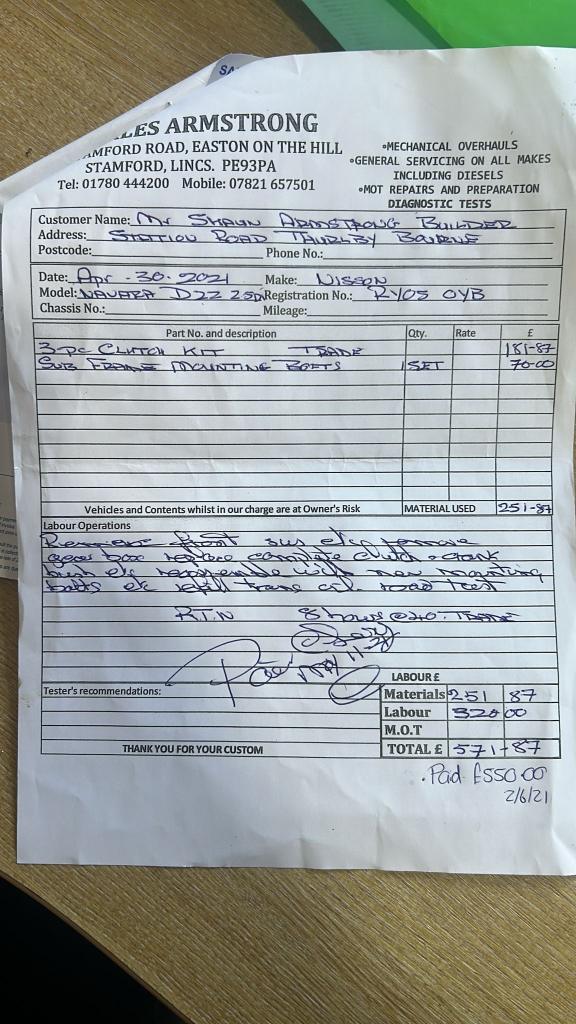 SA
LES ARMSTRONG
AMFORD ROAD, EASTON ON THE HILL
STAMFORD, LINCS. PE93PA
Tel: 01780 444200 Mobile: 07821 657501
•MECHANICAL OVERHAULS
•GENERAL SERVICING ON ALL MAKES
INCLUDING DIESELS
•MOT REPAIRS AND PREPARATION
DIAGNOSTIC TESTS
Customer Name: Mr SHAUN ARMSTRONG BUILDER
Address: STATION ROAD THURLBY BOURNE
Postcode: Phone No.:
Date: Apr - 30. 2021 Make: NISSON
Model: NAVARA D22 2.5Di Registration No.: RY05 OYB
Chassis No.: Mileage:
Part No. and description Qty. Rate £
3-pc CLUTCH KIT TRADE 181-87
SUB FRAME MOUNTING BOLTS 1 SET 70-00
Vehicles and Contents whilst in our charge are at Owner's Risk MATERIAL USED 251-87
Labour Operations
Remove front sus etc, remove
gear box replace complete clutch + crank
bush etc reassemble with new mounting
bolts etc refill trans oil. road test
R.T.N 8 hours @ 40. TRADE
Paid May 11-21
LABOUR £
Tester's recommendations:
Materials 251 87
Labour 320 00
M.O.T
TOTAL £ 571-87
THANK YOU FOR YOUR CUSTOM
. Paid £550.00
2/6/21